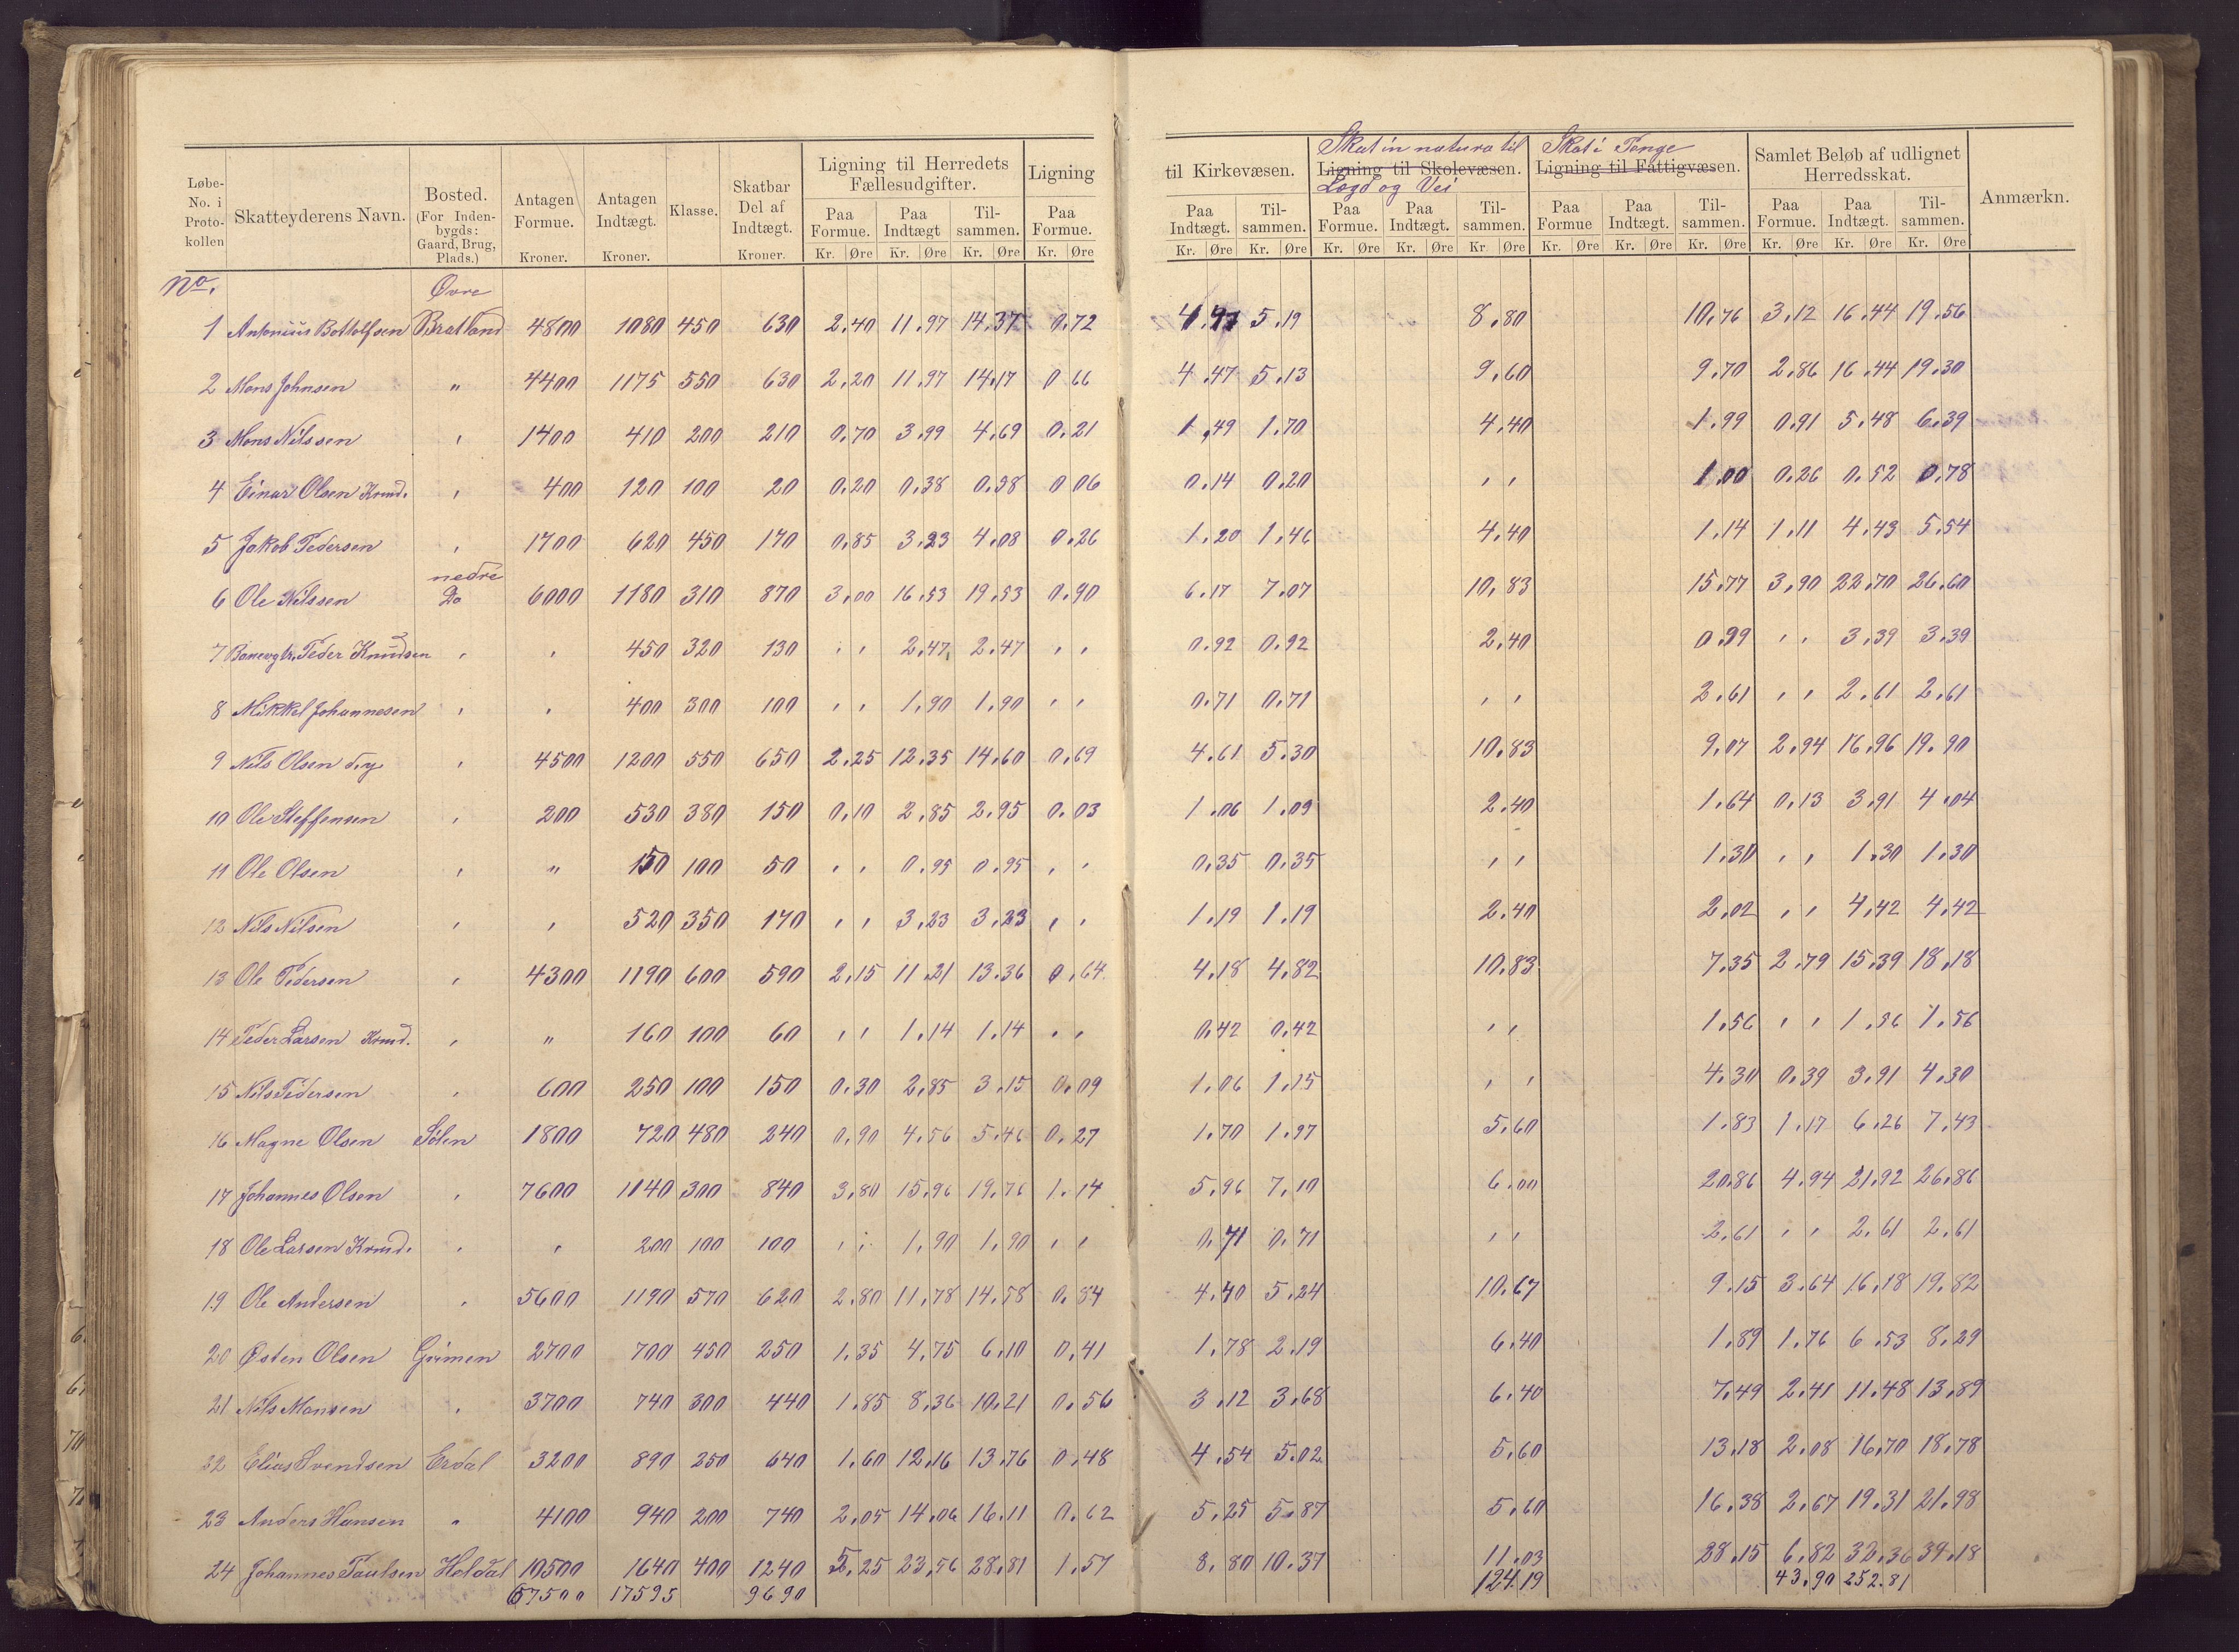 Løbe-No. i Proto-kollen | Skatteyderens Navn. | Bosted. (For Inden-bygds: Gaard, Brug, Plads.) | Antagen Formue. Kroner. | Antagen Indtægt. Kroner. | Klasse. | Skatbar Del af Indtægt. Kroner. | Ligning til Herredets Fællesudgifter. Paa Formue. Kr. Øre | Paa Indtægt Kr. Øre | Til-sammen. Kr. Øre | Ligning Paa Formue. Kr. Øre | til Kirkevæsen. Paa Indtægt. Kr. Øre | Til-sammen. Kr. Øre | Skat in natura til Ligning til Skolevæsen. Lægd og Vei Paa Formue. Kr. Øre | Paa Indtægt. Kr. Øre | Til-sammen. Kr. Øre | Skat i Penge Ligning til Fattigvæsen. Paa Formue Kr. Øre | Paa Indtægt. Kr. Øre | Til-sammen. Kr. Øre | Samlet Beløb af udlignet Herredsskat. Paa Formue. Kr. Øre | Paa Indtægt. Kr. Øre | Til-sammen. Kr. Øre | Anmærkn.
No. Øvre
1 Antonius Bottolfsen Bratland 4800 1080 450 630 2.40 11.97 14.37 0.72 4.47 5.19 8.80 10.76 3.12 16.44 19.56
2 Mons Johnsen " 4400 1175 550 630 2.20 11.97 14.17 0 66 4.47 5.13 9.60 9.70 2.86 16.44 19.30
3 Mons Nilssen " 1400 410 200 210 0.70 3.99 4.69 0.21 1.49 1.70 4.40 1.99 0.91 5.48 6.39
4 Einar Olsen Kaard. " 400 120 100 20 0.20 0.38 0.58 0 06 0.14 0.20 " " 1.00 0.26 0.52 0.78
5 Jakob Pedersen " 1700 620 450 170 0.85 3.23 4.08 0.26 1.20 1.46 4.40 1.14 1.11 4.43 5.54
nedre
6 Ole Nilssen Do 6000 1180 310 870 3.00 16.53 19.53 0.90 6.17 7.07 10.83 15.77 3.90 22.70 26.60
7 Banevgtr. Peder Knudsen " " 450 320 130 " " 2.47 2.47 " " 0.92 0.92 2.40 0.99 " " 3.39 3.39
8 Mikkel Johannesen " " 400 300 100 " " 1.90 1.90 " " 0.71 0.71 " " 2.61 " " 2.61 2.61
9 Nils Olsen d.y. " 4500 1200 550 650 2.25 12.35 14.60 0.69 4.61 5.30 10.83 9.07 2.94 16.96 19.90
10 Ole Steffensen " 200 530 380 150 0.10 2.85 2.95 0.03 1.06 1.09 2.40 1.64 0.13 3.91 4.04
11 Ole Olsen " " 150 100 50 " " 0.95 0.95 " " 0.35 0.35 " " 1.30 " " 1.30 1.30
12 Nils Nilsen " " 520 350 170 " " 3.23 3.23 " " 1.19 1.19 2.40 2.02 " " 4.42 4.42
13 Ole Pedersen " 4300 1190 600 590 2.15 11.21 13.36 0.64 4.18 4.82 10.83 7.35 2.79 15.39 18.18
14 Peder Larsen " " 160 100 60 " " 1.14 1.14 " " 0.42 0.42 " " 1.56 " " 1.56 1.56
15 Nils Pedersen " 600 250 100 150 0.30 2.85 3.15 0.09 1.06 1.15 " " 4.30 0.39 3.91 4.30
16 Magne Olsen Sølen 1800 720 480 240 0.90 4.56 5.46 0.27 1.70 1.97 5.60 1.83 1.17 6.26 7.43
17 Johannes Olsen " 7600 1140 300 840 3.80 15.96 19.76 1.14 5.96 7.10 6.00 20.86 4.94 21.92 26.86
18 Ole Larsen " " 200 100 100 " " 1.90 1.90 " " 0.71 0.71 " " 2.61 " " 2.61 2.61
19 Ole Andersen " 5600 1190 570 620 2.80 11.78 14.58 0.84 4.40 5.24 10.67 9.15 3.64 16.18 19.82
20 Østen Olsen Grimen 2700 700 450 250 1.35 4.75 6.10 0.41 1.78 2.19 6.40 1.89 1.76 6.53 8.29
21 Nils Monsen " 3700 740 300 440 1.85 8.36 10.21 0.56 3.12 3.68 6.40 7.49 2.41 11.48 13.89
22 Elias Svendsen Erdal 3200 890 250 640 1.60 12.16 13.76 0.48 4.54 5.02 5.60 13.18 2.08 16.70 18.78
23 Anders Hansen " 4100 940 200 740 2.05 14.06 16.11 0.62 5.25 5.87 5.60 16.38 2.67 19.31 21.98
24 Johannes Paulsen Heldal 10500 1640 400 1240 5.25 23.56 28.81 1.57 8.80 10.37 11.03 28.15 6.82 32.36 39.18
67500 17595 9690 124.19 43.90 252.81